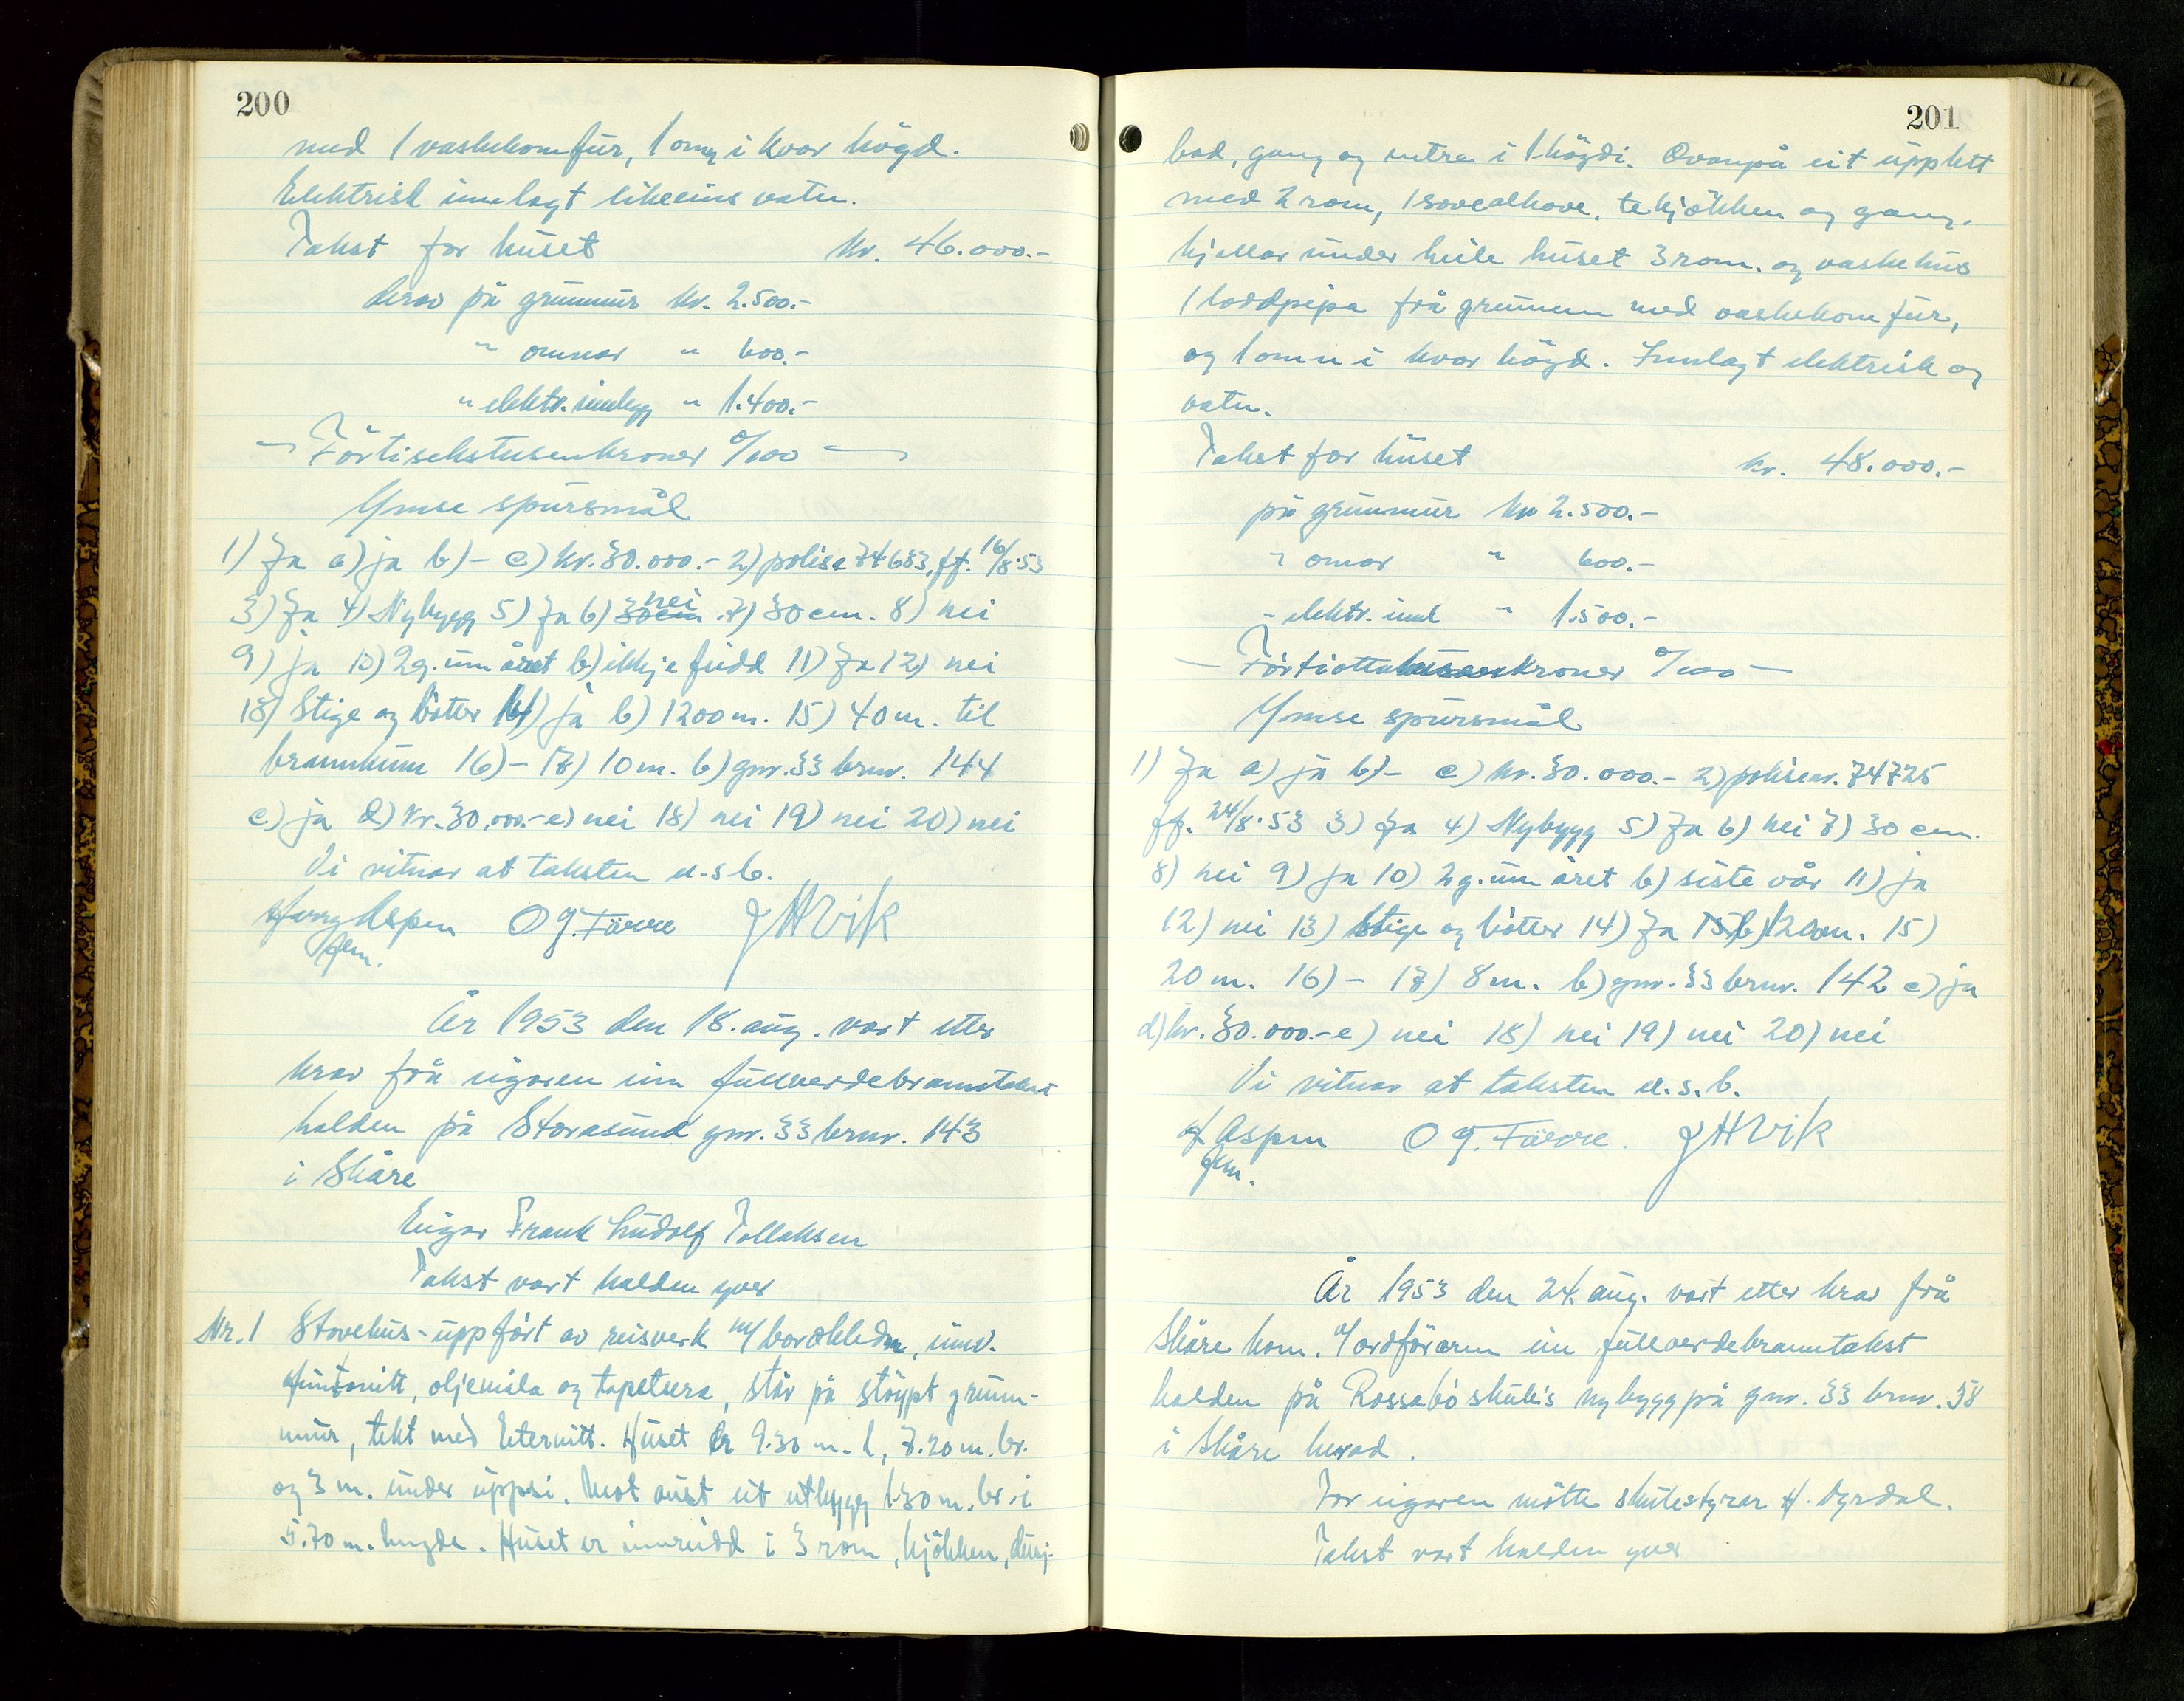 200
med 1 vaskekomfur, 1 omn i kvar högd.
Elektrisk innlagt likeeins vatn.
Takst for huset kr. 46.000.-
derav på grunnmur kr. 2.500.-
" omnar " 600.-
" elektr. innlegg " 1.400.-
— Förtisekstusenkroner 0/100 —
Ymse spursmål
1) Ja a) ja b) - c) kr. 30.000.- 2) polise 74683, ff. 16/8.53
3) Ja 4) Nybygg 5) Ja 6) 30cm nei 7) 30 cm. 8) nei
9) ja 10) 2 g. um året b) ikkje fudd 11) Ja 12) nei
13) Stige og bötter 14) ja b) 1200 m. 15) 40 m. til
brannkum 16) - 17) 10 m. b) gnr. 33 brnr. 144
c) ja d) Kr. 30.000.- e) nei 18) nei 19) nei 20) nei
Vi vitnar at taksten u.s.b.
Aspen O G. Förre J H Vik
fm.
År 1953 den 18. aug. vart etter
krav frå eigaren um fullverdebranntakst
halden på Storasund gnr. 33 brnr. 143
i Skåre
Eigar Frank Ludolf Tollaksen
Takst vart halden yver
Nr. 1 Stovehus - uppfört av reisverk m/bordkledn, innv.
Huntonitt, oljemåla og tapetsera, står på stöypt grunn-
mur, tekt med Eternitt. Huset er 9.30 m. l, 7.20 m. br.
og 3 m. under uppsi. Mot aust eit utbygg 1.30 m. br. i
5.70 m. lengde. Huset er innreidd i 3 rom, kjökken, dusj-
201
bad, gang og entre i 1 högdi. Ovanpå eit upplett
med 2 rom, 1 sovealkove, tekjökken og gang.
kjellar under heile huset 3 rom. og vaskehus
1 loddpipa frå grunnen med vaskekomfur,
og 1 omn i kvar högd. Innlagt elektrisk og
vatn.
Takst for huset kr. 48.000.-
på grunnmur kr 2.500.-
" omar " 600.-
" elektr. innl " 1.500.-
— Förtiottutusenkroner 0/100 —
Ymse spursmål
1) Ja a) ja b) - c) kr. 30.000.- 2) polisenr. 74725
ff. 24/8.53 3) Ja 4) Nybygg 5) Ja 6) nei 7) 30 cm.
8) nei 9) ja 10) 2 g. um året b) siste vår 11) ja
12) nei 13) Stige og bötter 14) Ja b) 1200m. 15)
20 m. 16) - 17) 8 m. b) gnr. 33 brnr. 142 c) ja
d) kr. 30.000.- e) nei 18) nei 19) nei 20) nei
Vi vitnar at taksten u.s.b.
H Aspen O G. Förre. J H Vik
fm.
År 1953 den 24. aug. vart etter krav frå
Skåre kom. v/ordföraren um fullverdebranntakst
halden på Rossabö skule's nybygg på gnr. 33 brnr. 58
i Skåre herad.
For eigaren mötte skulestyrar H. Dyrdal.
Takst vart halden yver